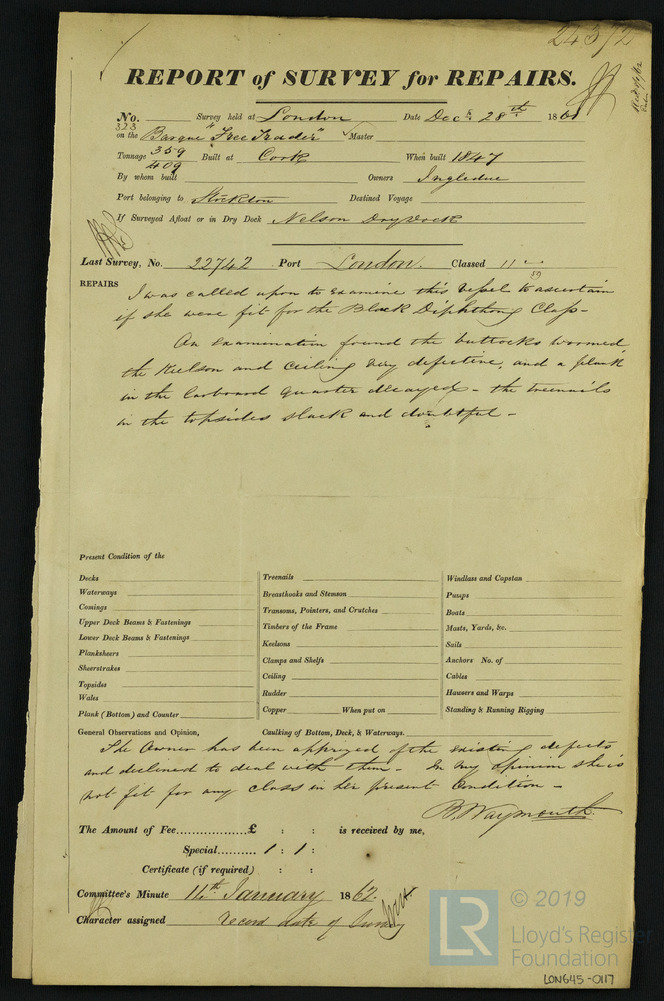 24372
REPORT of SURVEY for REPAIRS.
No. 323 Survey held at London Date Decr 28th 1861
on the Barque "Free Trader" Master
Tonnage 359 Built at Cork When built 1847
409
By whom built Owners Ingledue
Port belonging to Stockton Destined Voyage
If Surveyed Afloat or in Dry Dock Nelson Dry Dock
Last Survey, No. 22742 Port London. Classed 11
59
REPAIRS I was called upon to examine this Vessel to ascertain
if she were fit for the Black Diphthong Class-
On examination found the buttocks wormed
the Keelson and Ceiling very defective, and a plank
in the larboard quarter decayed - the treenails
in the topsides slack and doubtful -
Present Condition of the
Decks
Waterways
Comings
Upper Deck Beams & Fastenings
Lower Deck Beams & Fastenings
Planksheers
Sheerstrakes
Topsides
Wales
Plank (Bottom) and Counter
Treenails
Breasthooks and Stemson
Transoms, Pointers, and Crutches
Timbers of the Frame
Keelsons
Clamps and Shelfs
Ceiling
Rudder
Copper When put on
Caulking of Bottom, Deck, & Waterways.
Windlass and Capstan
Pumps
Boats
Masts, Yards, &c.
Sails
Anchors No. of
Cables
Hawsers and Warps
Standing & Running Rigging
General Observations and Opinion,
The Owner has been apprized of the existing defects
and declined to deal with them - In my opinion she is
not fit for any class in her present Condition -
B. Waymouth
The Amount of Fee............... £ : : is received by me,
Special.......... 1 : 1 :
Certificate (if required) : :
Committee's Minute 14th January 1862.
Character assigned record date of Survey
© 2019
LR
Lloyd's Register
Foundation
LON645-0117